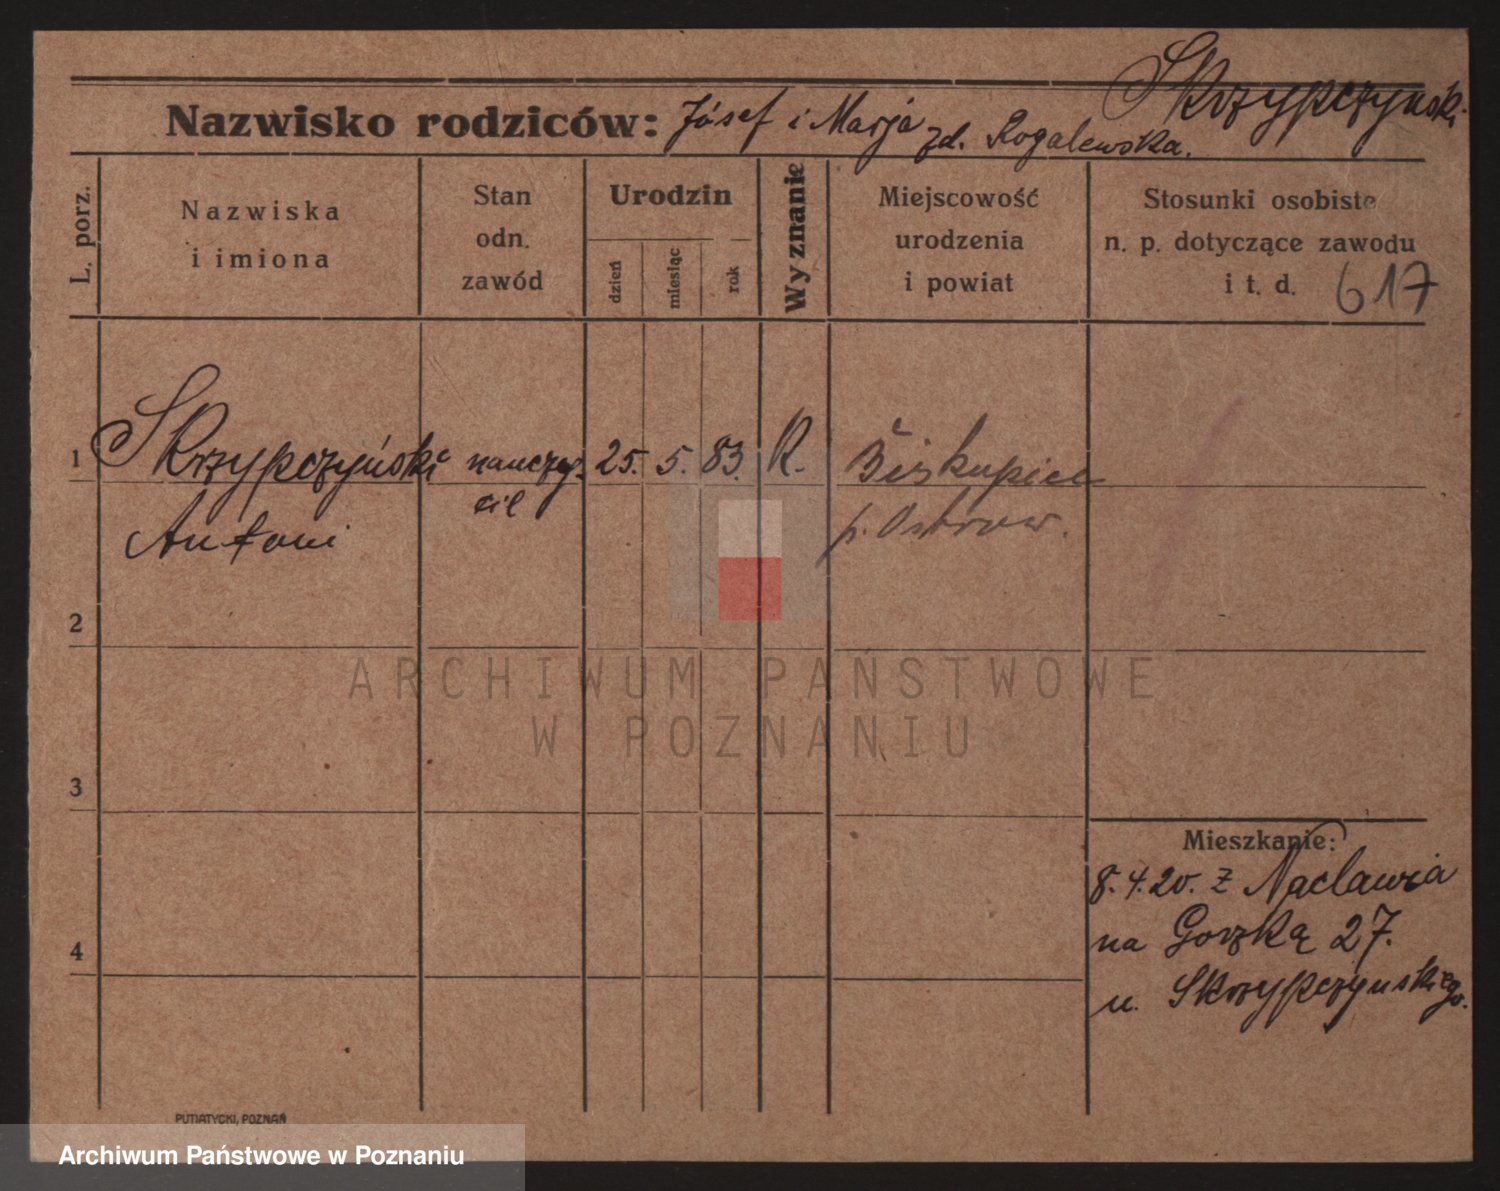 Skrzypczynski
Nazwisko rodziców: Józef i Marja zd. Rogalewska.
L. porz.
Nazwiska
i imiona
Stan
odn.
zawód
Urodzin
dzień
miesiąc
rok
Wyznanie
Miejscowość
urodzenia
i powiat
Stosunki osobiste
n. p. dotyczące zawodu
i t. d. 617
1 Skrzypczyński nauczy- 25. 5. 83. R. Biskupice
ciel
Antoni p. Ostrow.
2
ARCHIWUM PAŃSTWOWE
W POZNANIU
3
Mieszkanie:
8.4.20. z Nacławia
na Gorzką 27.
u. Skrzypczynskiego.
4
PUTIATYCKI, POZNAŃ
Archiwum Państwowe w Poznaniu